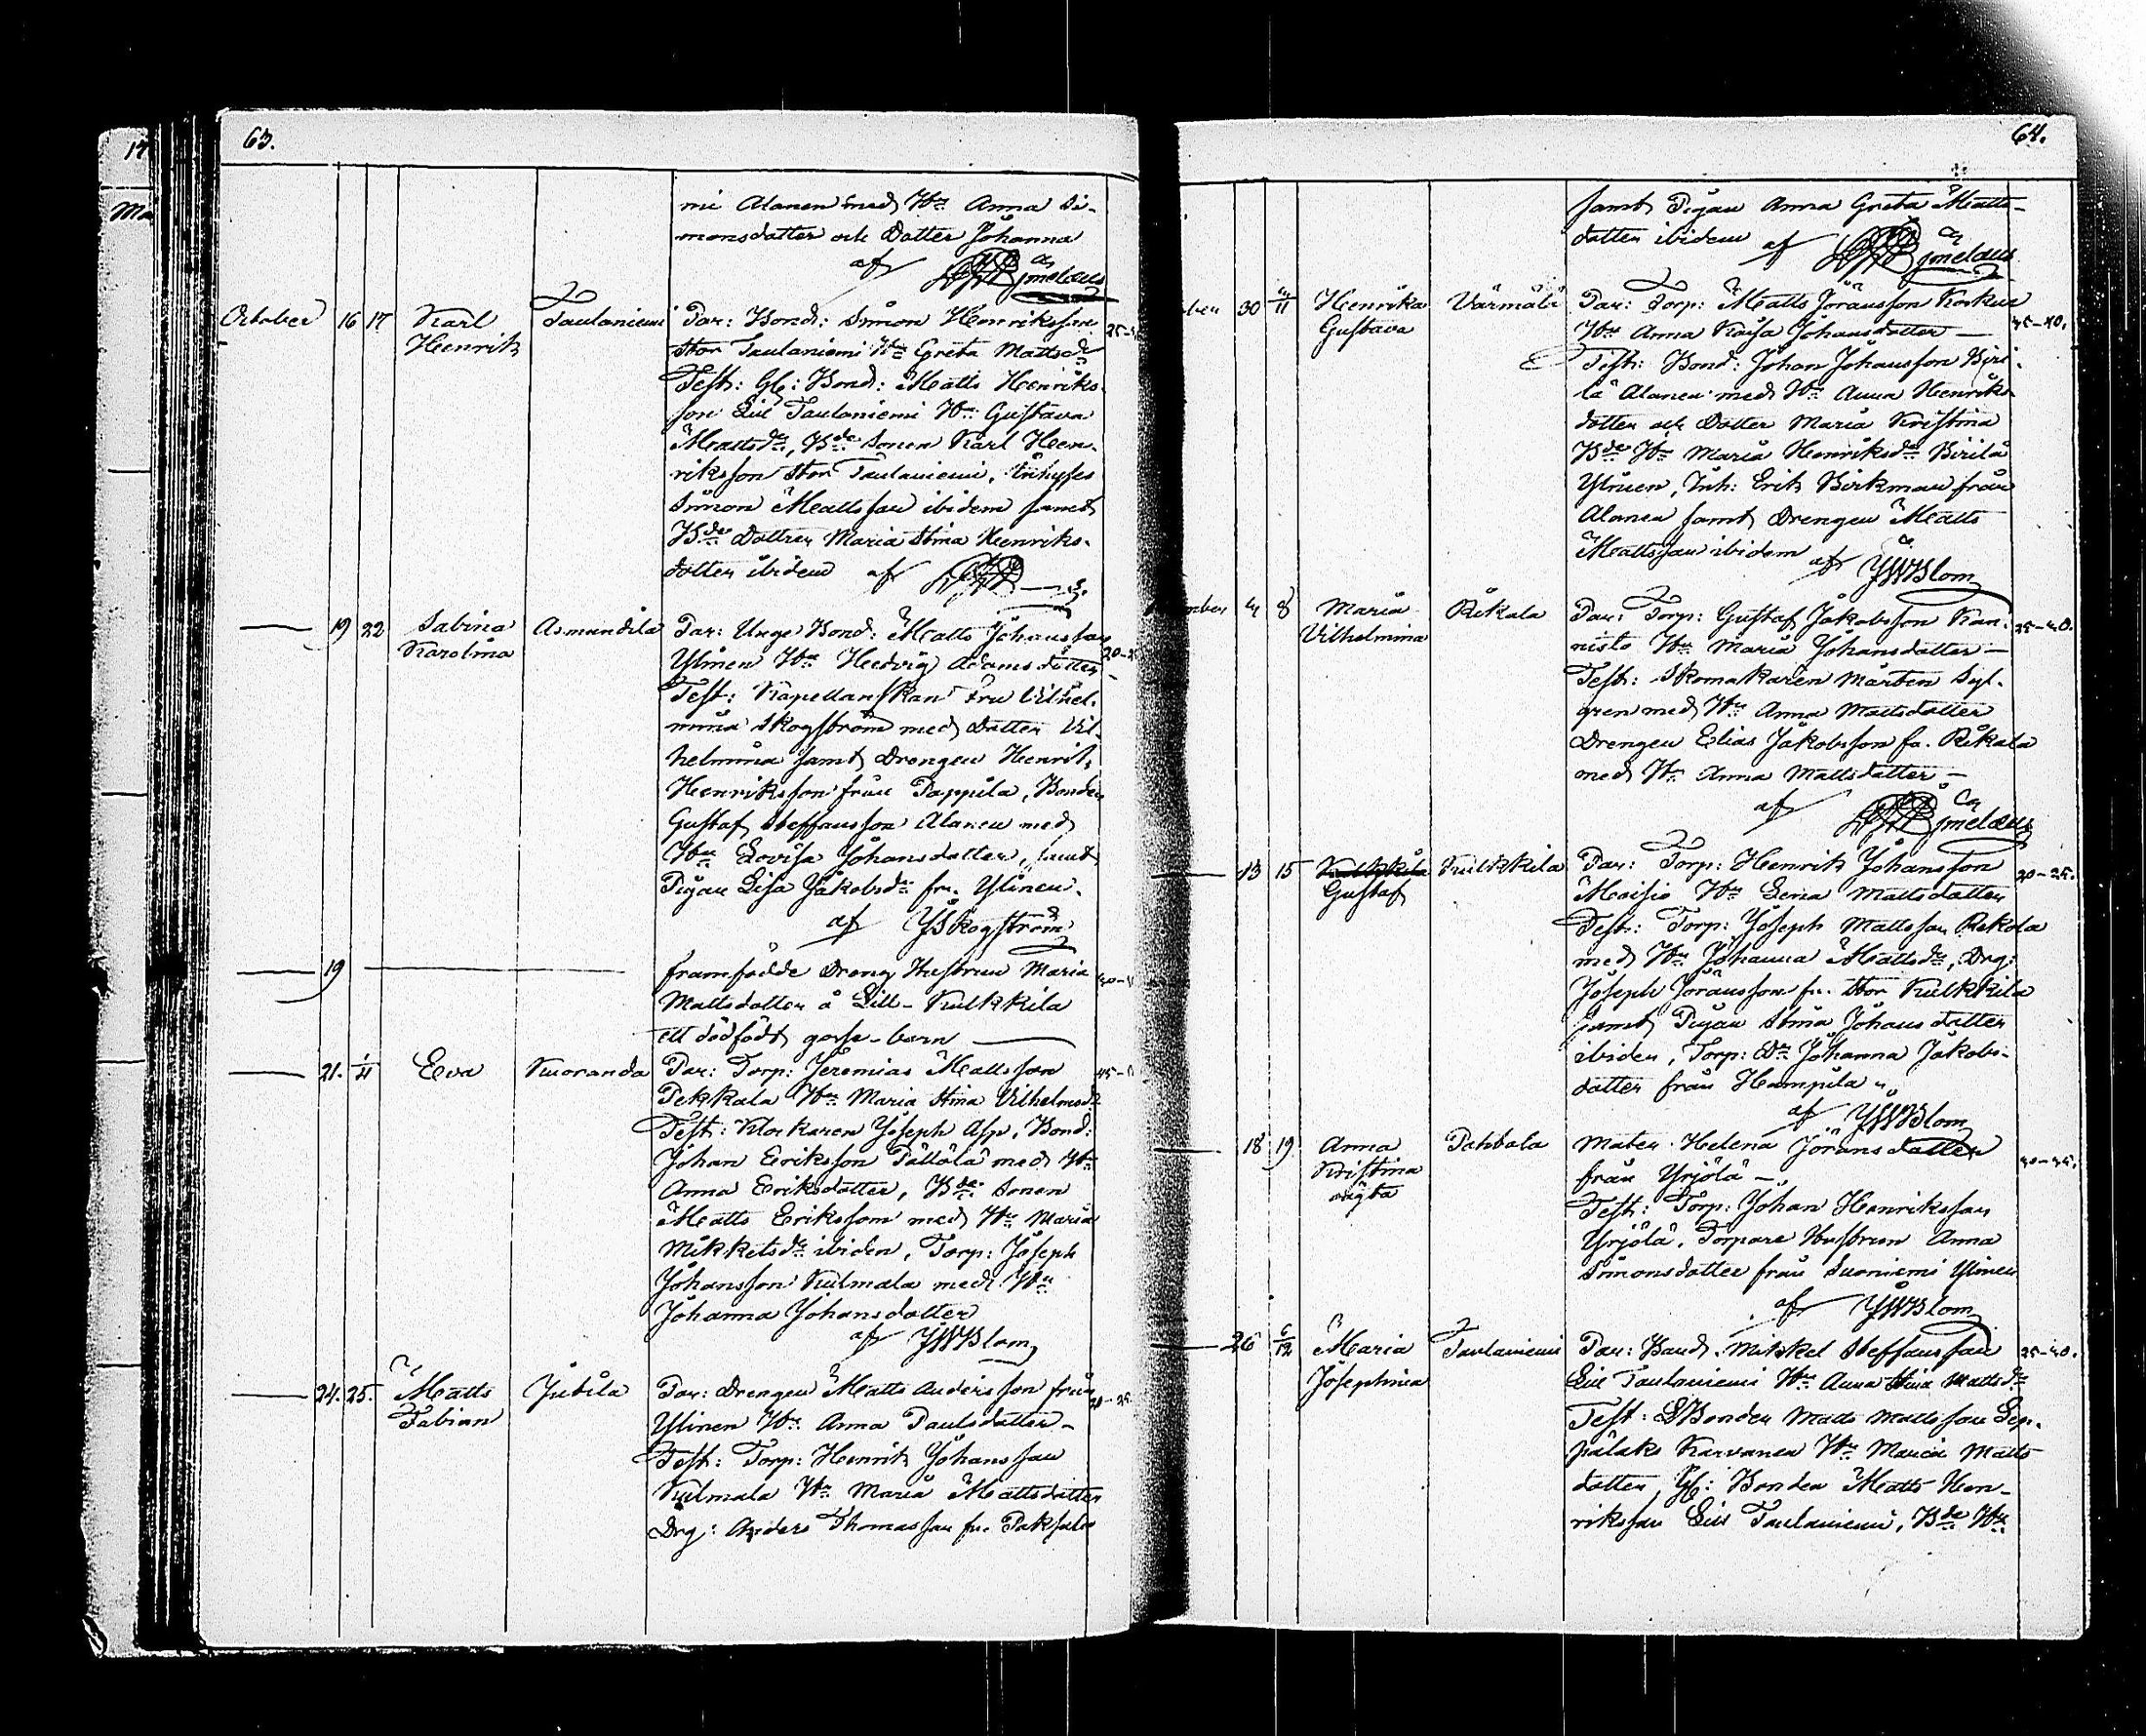 63.
mi Alanen med Hu Anna Si-
monsdotter och Dotter Johanna
af
October 16 17 Karl Henrik Taulaniemi Par: Bond: Simon Henriksson
Stor Taulaniemi Hu Greta Mattsdr
Test: Gl: Bond: Matts Henriks-
son Lill Taulaniemi Hu Gustava
Mattsdr, Bde Sonen Karl Hen-
riksson Stor Taulaniemi, Inhyses
Simon Mattsson ibidem samt
Bde Dottren Maria Stina Henriks-
dotter ibidem af
19 22 Sabina Karolina Asmundila Par: Unge Bond: Matts Johansson
Ylinen Hu Hedvig Adamsdotter
Test: Kapellanskan Fru Vilhel-
mina Skogström med Dotter Vil-
helmina samt Drengen Henrik
Henriksson från Pappila, Bonden
Gustaf Steffansson Alanen med
Hu Lovisa Johansdotter, samt
Pigan Lisa Jakobsdr fr. Ylinen.
af JSkogström
19 framfödde Dreng Hustrun Maria
Mattsdotter å Lill-Kulkkila
ett dödfödt gosse-barn
21. 1/11 Eva Kuoranda Par: Torp: Jeremias Mattsson
Pekkala Hu Maria Stina Vilhelmsdr
Test: Klockaren Joseph Asp, Bond:
Johan Eriksson Pällälä med Hu
Anna Eriksdotter, Bde Sonen
Matts Eriksson med Hu Maria
Mikkelsdr ibidem, Torp: Joseph
Johansson Kulmala med Hu
Johanna Johansdotter
af JWBlom
24. 25. Matts Fabian Jutila Par: Drengen Matts Andersson från 20-25.
Ylinen Hu Anna Paulsdotter -
Test: Torp: Henrik Johansson
Kulmala Hu Maria Mattsdotter
Drg: Anders Thomasson fr.
64.
samt Pigan Anna Greta Matts-
dotter ibidem af
30 4/11 Henrika Gustava Värmälä Par: Torp: Matts Jöransson 35-40.
Hu Anna Kaisa Johansdotter
Test: Bond: Johan Johansson Piri-
lä Alanen med Hu Anna Henriks-
dotter och Dotter Maria Kristina
Bde Hu Maria Henriksdr Pirilä
Ylinen, Inh: Erik Birkman från
Alanen samt Drengen Matts
Mattsson ibidem af JWBlom
4 8 Maria Vilhelmina Rekala Par: Torp: Gustaf Jakobsson Kan- 35-40.
nisto Hu Maria Johansdotter -
Test: Skomakaren Mårten Sjö-
gren med Hu Anna Mattsdotter
Drengen Elias Jakobsson fr. Rekala
med Hu Anna Mattsdotter -
af
13 15 Gustaf Kulkkila Par: Torp: Henrik Johansson 20-25.
Moisio Hu Lena Mattsdotter
Test: Torp: Joseph Mattsson Rekola
med Hu Johanna Mattsdr, Drg:
Joseph Jöransson fr. Stor Kulkkila
samt Pigan Stina Johansdotter
ibidem, Torp: Dr Johanna Jakobs-
dotter från Hampula
af JWBlom
18 19 Anna Kristina oägta Pahtala Mater Helena Jöransdotter 30-35.
från Yrjölä -
Test: Torp: Johan Henriksson
Yrjölä, Torpare Hustrun Anna
Simonsdotter från Suoniemi Ylinen
af JWBlom
26 6/12 Maria Josephina Taulaniemi Par: Bond: Mikkel Steffansson 35-40.
Lill Taulaniemi Hu Anna Stina Mattsdr
Test: Bonden Matts Mattsson Sep-
Karvanen Hu Maria Matts
dotter, Gl: Bonden Matts Hen-
riksson Lill Taulaniemi, Bde Hu